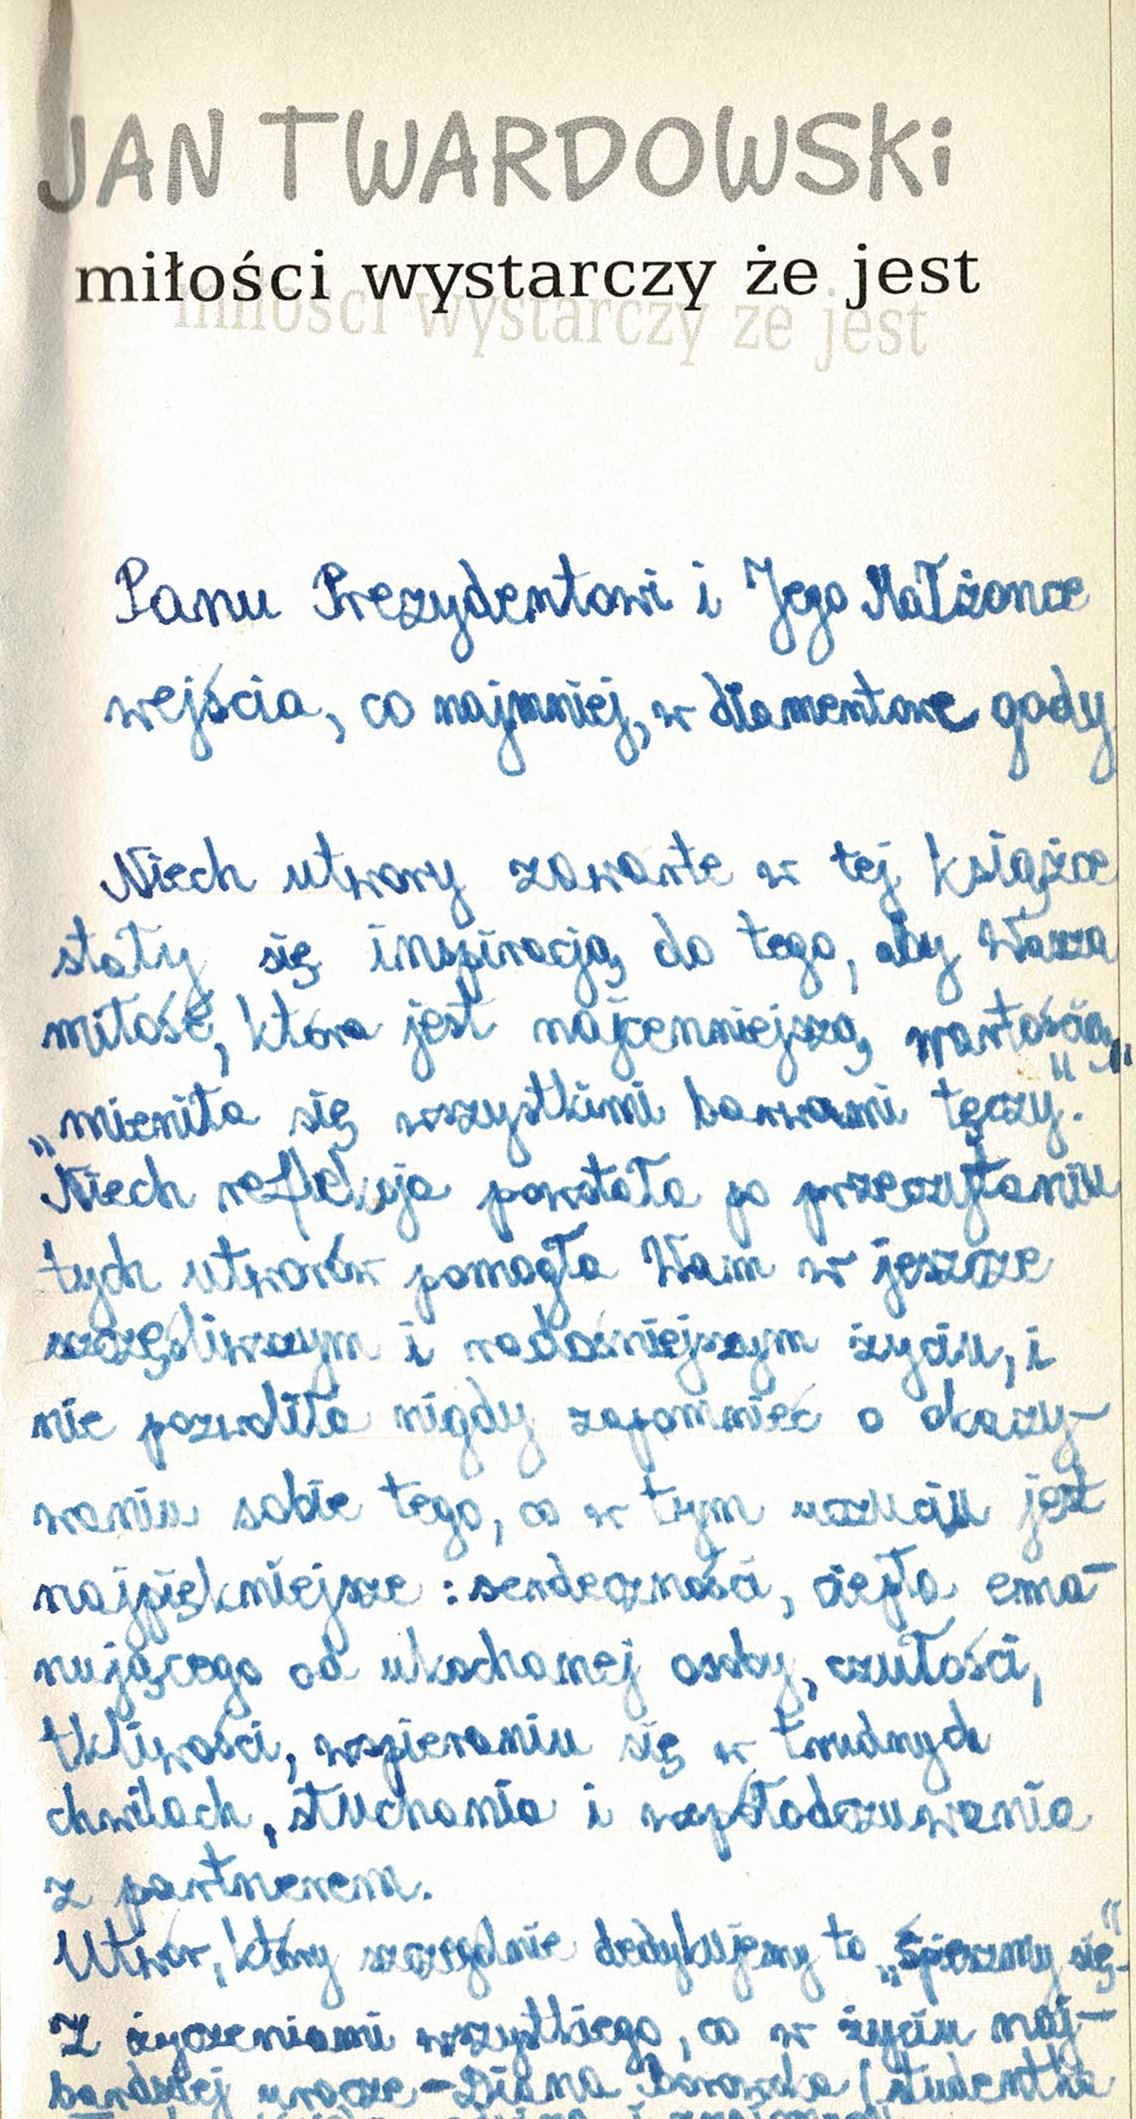 JAN TWARDOWSKi
miłości wystarczy że jest
miłości wystarczy że jest
Panu Prezydentowi i Jego Małżonce
wejścia, co najmniej, w diamentowe gody
Niech utwory zawarte w tej książce
stały się inspiracją do tego, aby Wasza
miłość, która jest najcenniejszą wartością,
„mieniła się wszystkimi barwami tęczy".
Niech refleksja powstała po przeczytaniu
tych utworów pomogła Wam w jeszcze
szczęśliwszym i radośniejszym życiu, i
nie pozwoliła nigdy zapomnieć o okazy-
waniu sobie tego, co w tym uczuciu jest
najpiękniejsze : serdeczności, ciepła ema-
nującego od ukochanej osoby, czułości,
tkliwości, wspieraniu się w trudnych
chwilach, słuchania i współodczuwania
z partnerem.
Utwór, który szczególnie dedykujemy to „Śpieszmy się"
Z życzeniami wszystkiego, co w życiu naj-
bardziej urocze - Diana Borowska (studentka